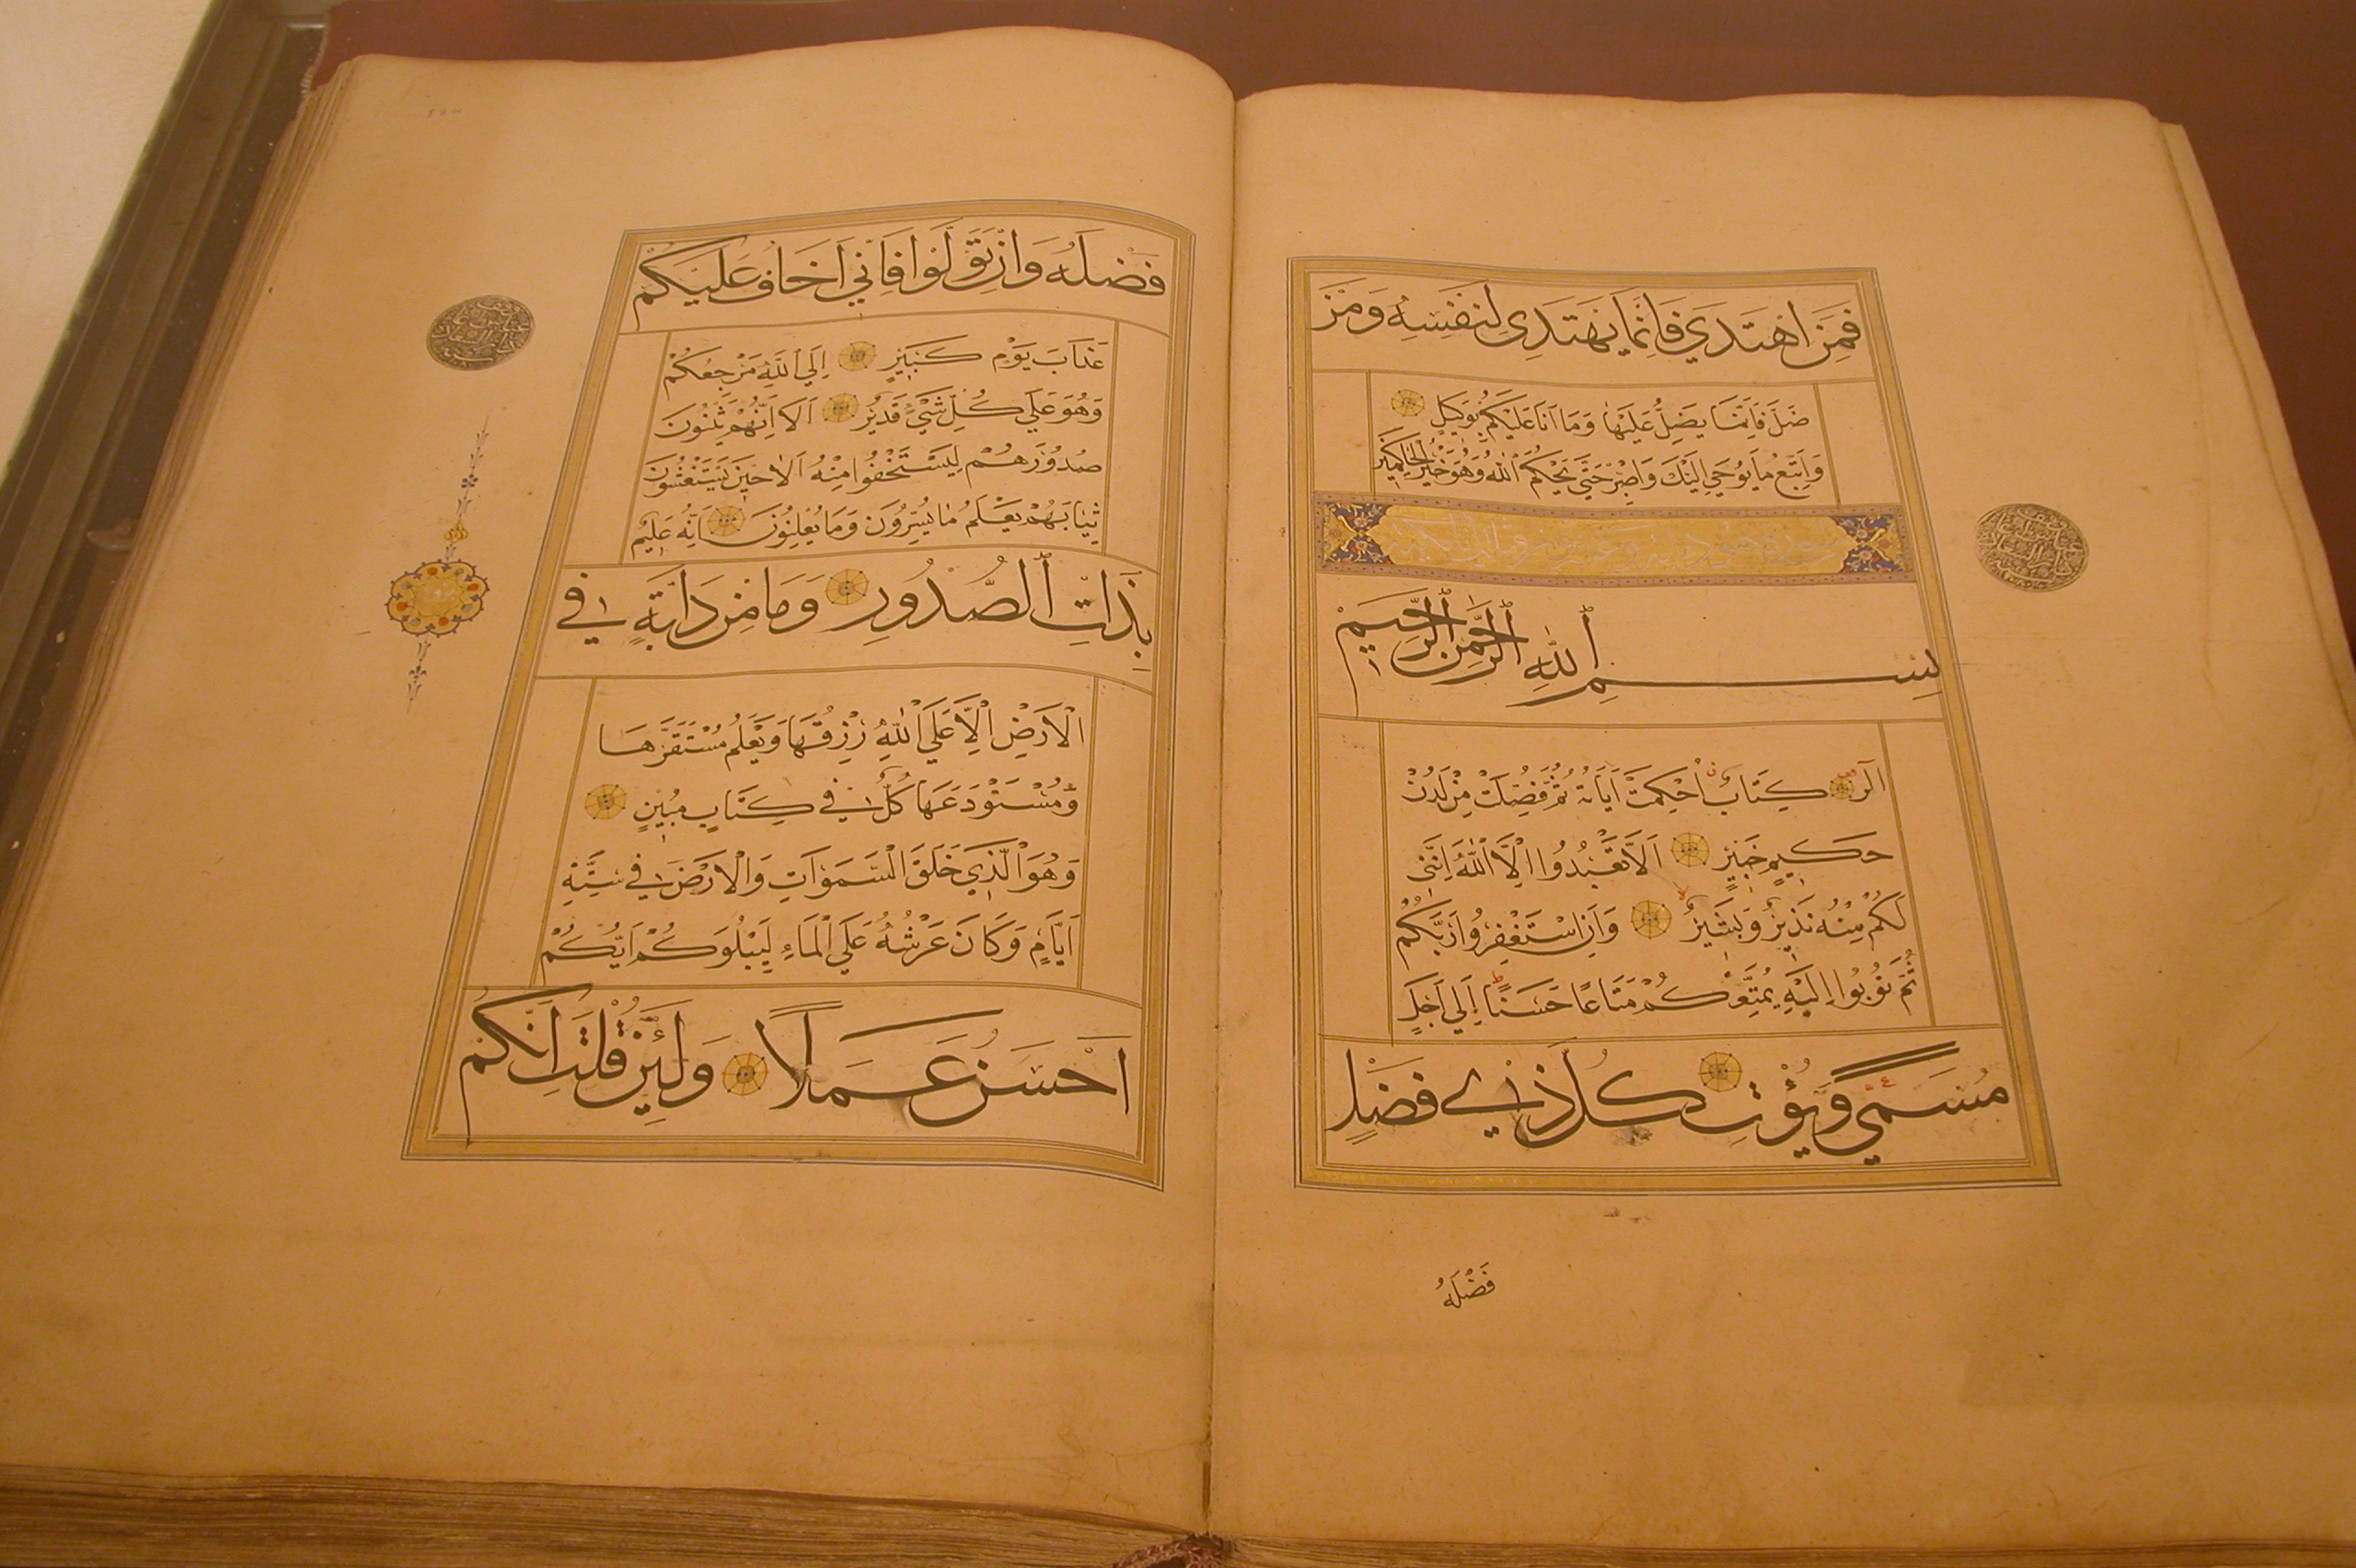 فَمَنِ اهْتَدَي فَاِنَّمَا يَهْتَدِي لِنَفْسِهِ وَمَنْ
ضَلَّ فَاِنَّمَا يَضِلُّ عَلَيْهَا وَمَا اَنَا عَلَيْكُمْ بِوَكِيلٍ
وَاتَّبِعْ مَا يُوحَي اِلَيْكَ وَاصْبِرْ حَتَّي يَحْكُمَ اللهُ وَهُوَ خَيْرُ الْحَاكِمِينَ
بِسْمِ اللهِ الرَّحْمٰنِ الرَّحِيمِ
الر كِتَابٌ اُحْكِمَتْ اٰيَاتُهُ ثُمَّ فُصِّلَتْ مِنْ لَدُنْ
حَكِيمٍ خَبِيرٍ اَلَّا تَعْبُدُوا اِلَّا اللهَ اِنَّنِي
لَكُمْ مِنْهُ نَذِيرٌ وَبَشِيرٌ وَاَنِ اسْتَغْفِرُوا رَبَّكُمْ
ثُمَّ تُوبُوا اِلَيْهِ يُمَتِّعْكُمْ مَتَاعًا حَسَنًا اِلَي اَجَلٍ
مُسَمًّي وَيُؤْتِ كُلَّ ذِي فَضْلٍ
فَضْلَهُ
فَضْلَهُ وَاِنْ تَوَلَّوْا فَاِنِّي اَخَافُ عَلَيْكُمْ
عَذَابَ يَوْمٍ كَبِيرٍ اِلَي اللهِ مَرْجِعُكُمْ
وَهُوَ عَلَي كُلِّ شَيْءٍ قَدِيرٌ اَلَا اِنَّهُمْ يَثْنُونَ
صُدُورَهُمْ لِيَسْتَخْفُوا مِنْهُ اَلَا حِينَ يَسْتَغْشُونَ
ثِيَابَهُمْ يَعْلَمُ مَا يُسِرُّونَ وَمَا يُعْلِنُونَ اِنَّهُ عَلِيمٌ
بِذَاتِ الصُّدُورِ وَمَا مِنْ دَابَّةٍ فِي
الْاَرْضِ اِلَّا عَلَي اللهِ رِزْقُهَا وَيَعْلَمُ مُسْتَقَرَّهَا
وَمُسْتَوْدَعَهَا كُلٌّ فِي كِتَابٍ مُبِينٍ
وَهُوَ الَّذِي خَلَقَ السَّمٰوَاتِ وَالْاَرْضَ فِي سِتَّةِ
اَيَّامٍ وَكَانَ عَرْشُهُ عَلَي الْمَاءِ لِيَبْلُوَكُمْ اَيُّكُمْ
اَحْسَنُ عَمَلًا وَلَئِنْ قُلْتَ اِنَّكُمْ